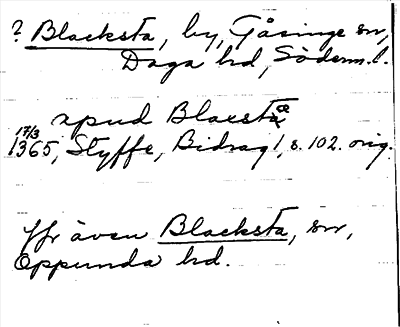 ? Blacksta, by, Gåsinge sn,
Daga hd, Söderm. l.
apud Blacsta
17/3 1365, Styffe, Bidrag 1, s. 102. orig.
Jfr även Blacksta, sn,
Oppunda hd.